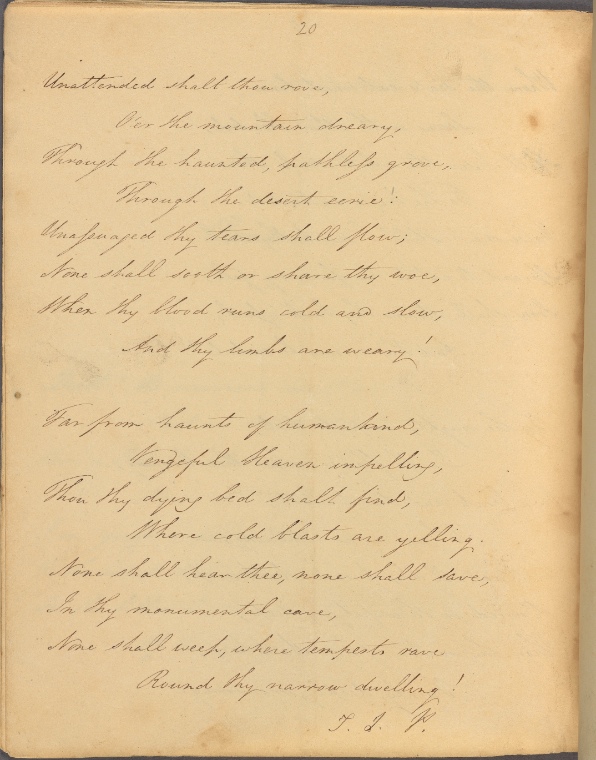 20
Unattended shall thou rove,
O'er the mountain dreary,
Through the haunted, pathless grove,
Through the desert eerie!
Unassuaged thy tears shall flow;
None shall sooth or share thy woe,
When thy blood runs cold and slow,
And thy limbs are weary!
Far from haunts of humankind,
Vengeful Heaven impelling,
Thou thy dying bed shalt find,
Where cold blasts are yelling.
None shall hear thee, none shall save,
In thy monumental cave,
None shall weep, where tempests rave
Round thy narrow dwelling!
T. L. P.